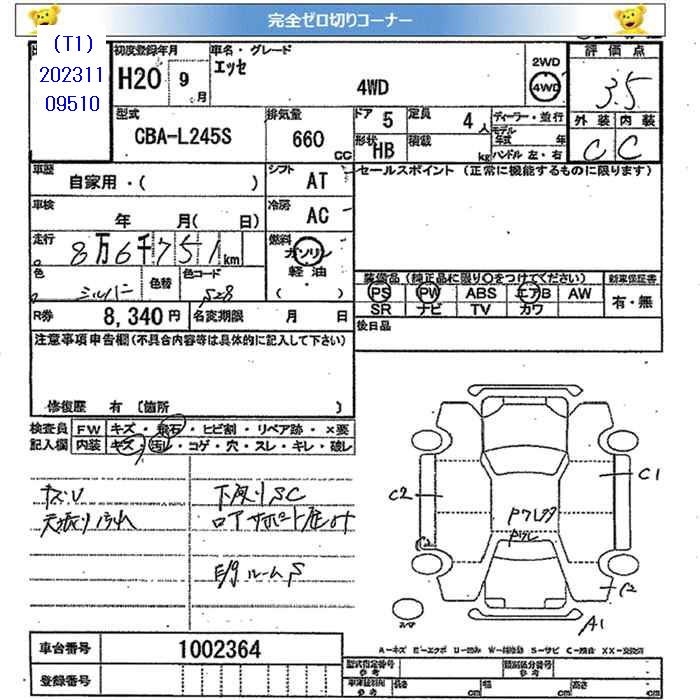 完全ゼロ切りコーナー
(T1)
202311
09510
初度登録年月
H20 9月
車名・グレード
エッセ
4WD
2WD
4WD
評価点
3.5
型式
CBA-L245S
排気量
660 CC
ドア 5
定員 4人
形状 HB
積載 kg
ディーラー・並行
モデル年式 年
ハンドル 左・右
外装 内装
C C
車歴
自家用・( )
シフト AT
セールスポイント (正常に機能するものに限ります)
車検
年 月( 日)
冷房 AC
走行
8万6千751km
燃料
ガソリン
軽油
( )
色
シルバー
色替
色コード
S28
装備品 (純正品に限り○をつけてください)
新車保証書
PS PW ABS エアB AW
有・無
SR ナビ TV カワ
R券 8,340円
名変期限 月 日
後日品
注意事項申告欄(不具合内容等は具体的に記入して下さい)
修復歴 有 〔箇所 〕
検査員 FW キズ・飛石・ヒビ割・リペア跡・×要
記入欄 内装 キズ・汚れ・コゲ・穴・スレ・キレ・破レ
下廻りSC
E/gルームS
C2
C1
A1
車台番号 1002364
登録番号
型式指定番号
参考
類別区分番号
参考
長さ cm 幅 cm 高さ cm